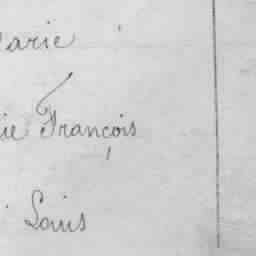 Marie
ie François
Louis